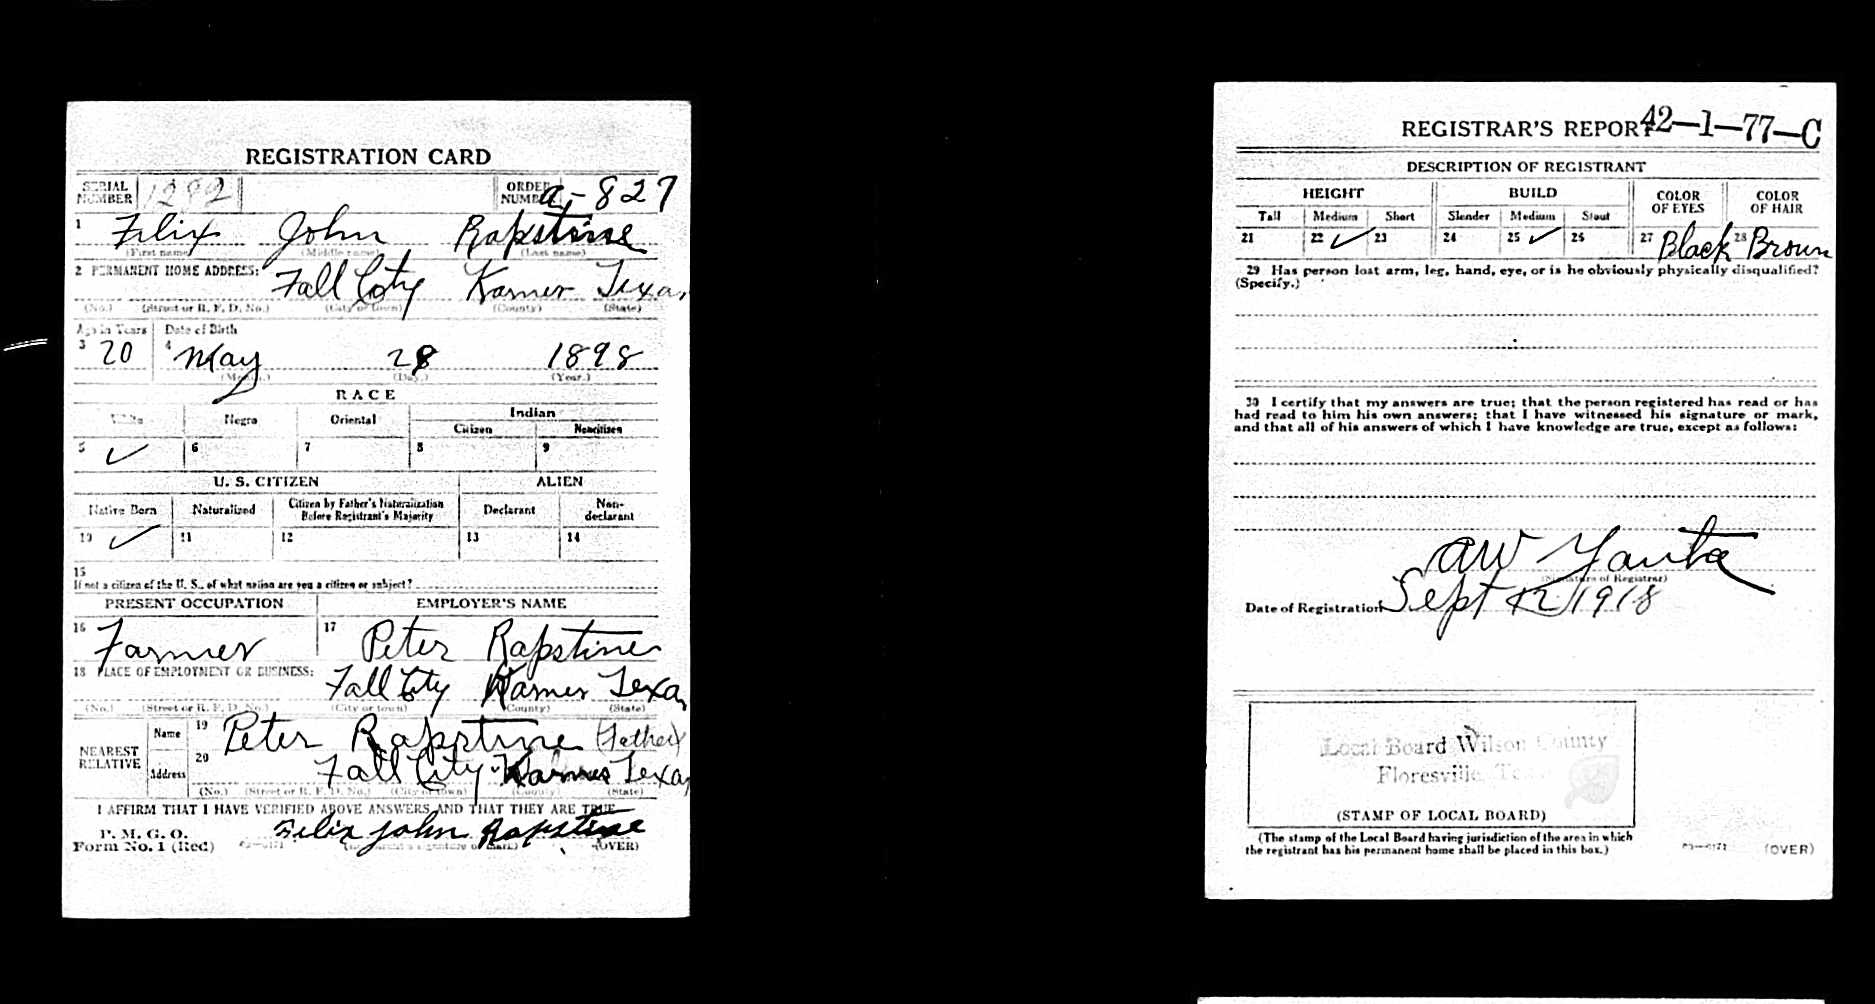 REGISTRATION CARD
SERIAL NUMBER 1282 ORDER NUMBER a-827
1 Felix John Rapstine
(First name) (Middle name) (Last name)
2 PERMANENT HOME ADDRESS: Fall City Karnes Texas
(No.) (Street or R. F. D. No.) (City or town) (County) (State)
Age in Years Date of Birth
3 20 4 May 28 1898
(Month.) (Day.) (Year.)
RACE
White Negro Oriental Indian
Citizen Noncitizen
5 ✓ 6 7 8 9
U. S. CITIZEN ALIEN
Native Born Naturalized Citizen by Father's Naturalization Before Registrant's Majority Declarant Non-declarant
10 ✓ 11 12 13 14
15
If not a citizen of the U. S., of what nation are you a citizen or subject?
PRESENT OCCUPATION EMPLOYER'S NAME
16 Farmer 17 Peter Rapstine
18 PLACE OF EMPLOYMENT OR BUSINESS: Fall City Karnes Texas
(No.) (Street or R. F. D. No.) (City or town) (County) (State)
NEAREST RELATIVE Name 19 Peter Rapstine (Father)
Address 20 Fall City Karnes Texas
(No.) (Street or R. F. D. No.) (City or town) (County) (State)
I AFFIRM THAT I HAVE VERIFIED ABOVE ANSWERS AND THAT THEY ARE TRUE
P. M. G. O.
Form No. 1 (Red) Felix John Rapstine
(Registrant's signature or mark) (OVER)
REGISTRAR'S REPORT 42-1-77-C
DESCRIPTION OF REGISTRANT
HEIGHT BUILD COLOR OF EYES COLOR OF HAIR
Tall Medium Short Slender Medium Stout
21 22 ✓ 23 24 25 ✓ 26 27 Black 28 Brown
29 Has person lost arm, leg, hand, eye, or is he obviously physically disqualified?
(Specify.)
30 I certify that my answers are true; that the person registered has read or has
had read to him his own answers; that I have witnessed his signature or mark,
and that all of his answers of which I have knowledge are true, except as follows:
AW Yanta
(Signature of Registrar)
Date of Registration Sept 12 1918
Local Board Wilson County
Floresville,
(STAMP OF LOCAL BOARD)
(The stamp of the Local Board having jurisdiction of the area in which
the registrant has his permanent home shall be placed in this box.)
(OVER)